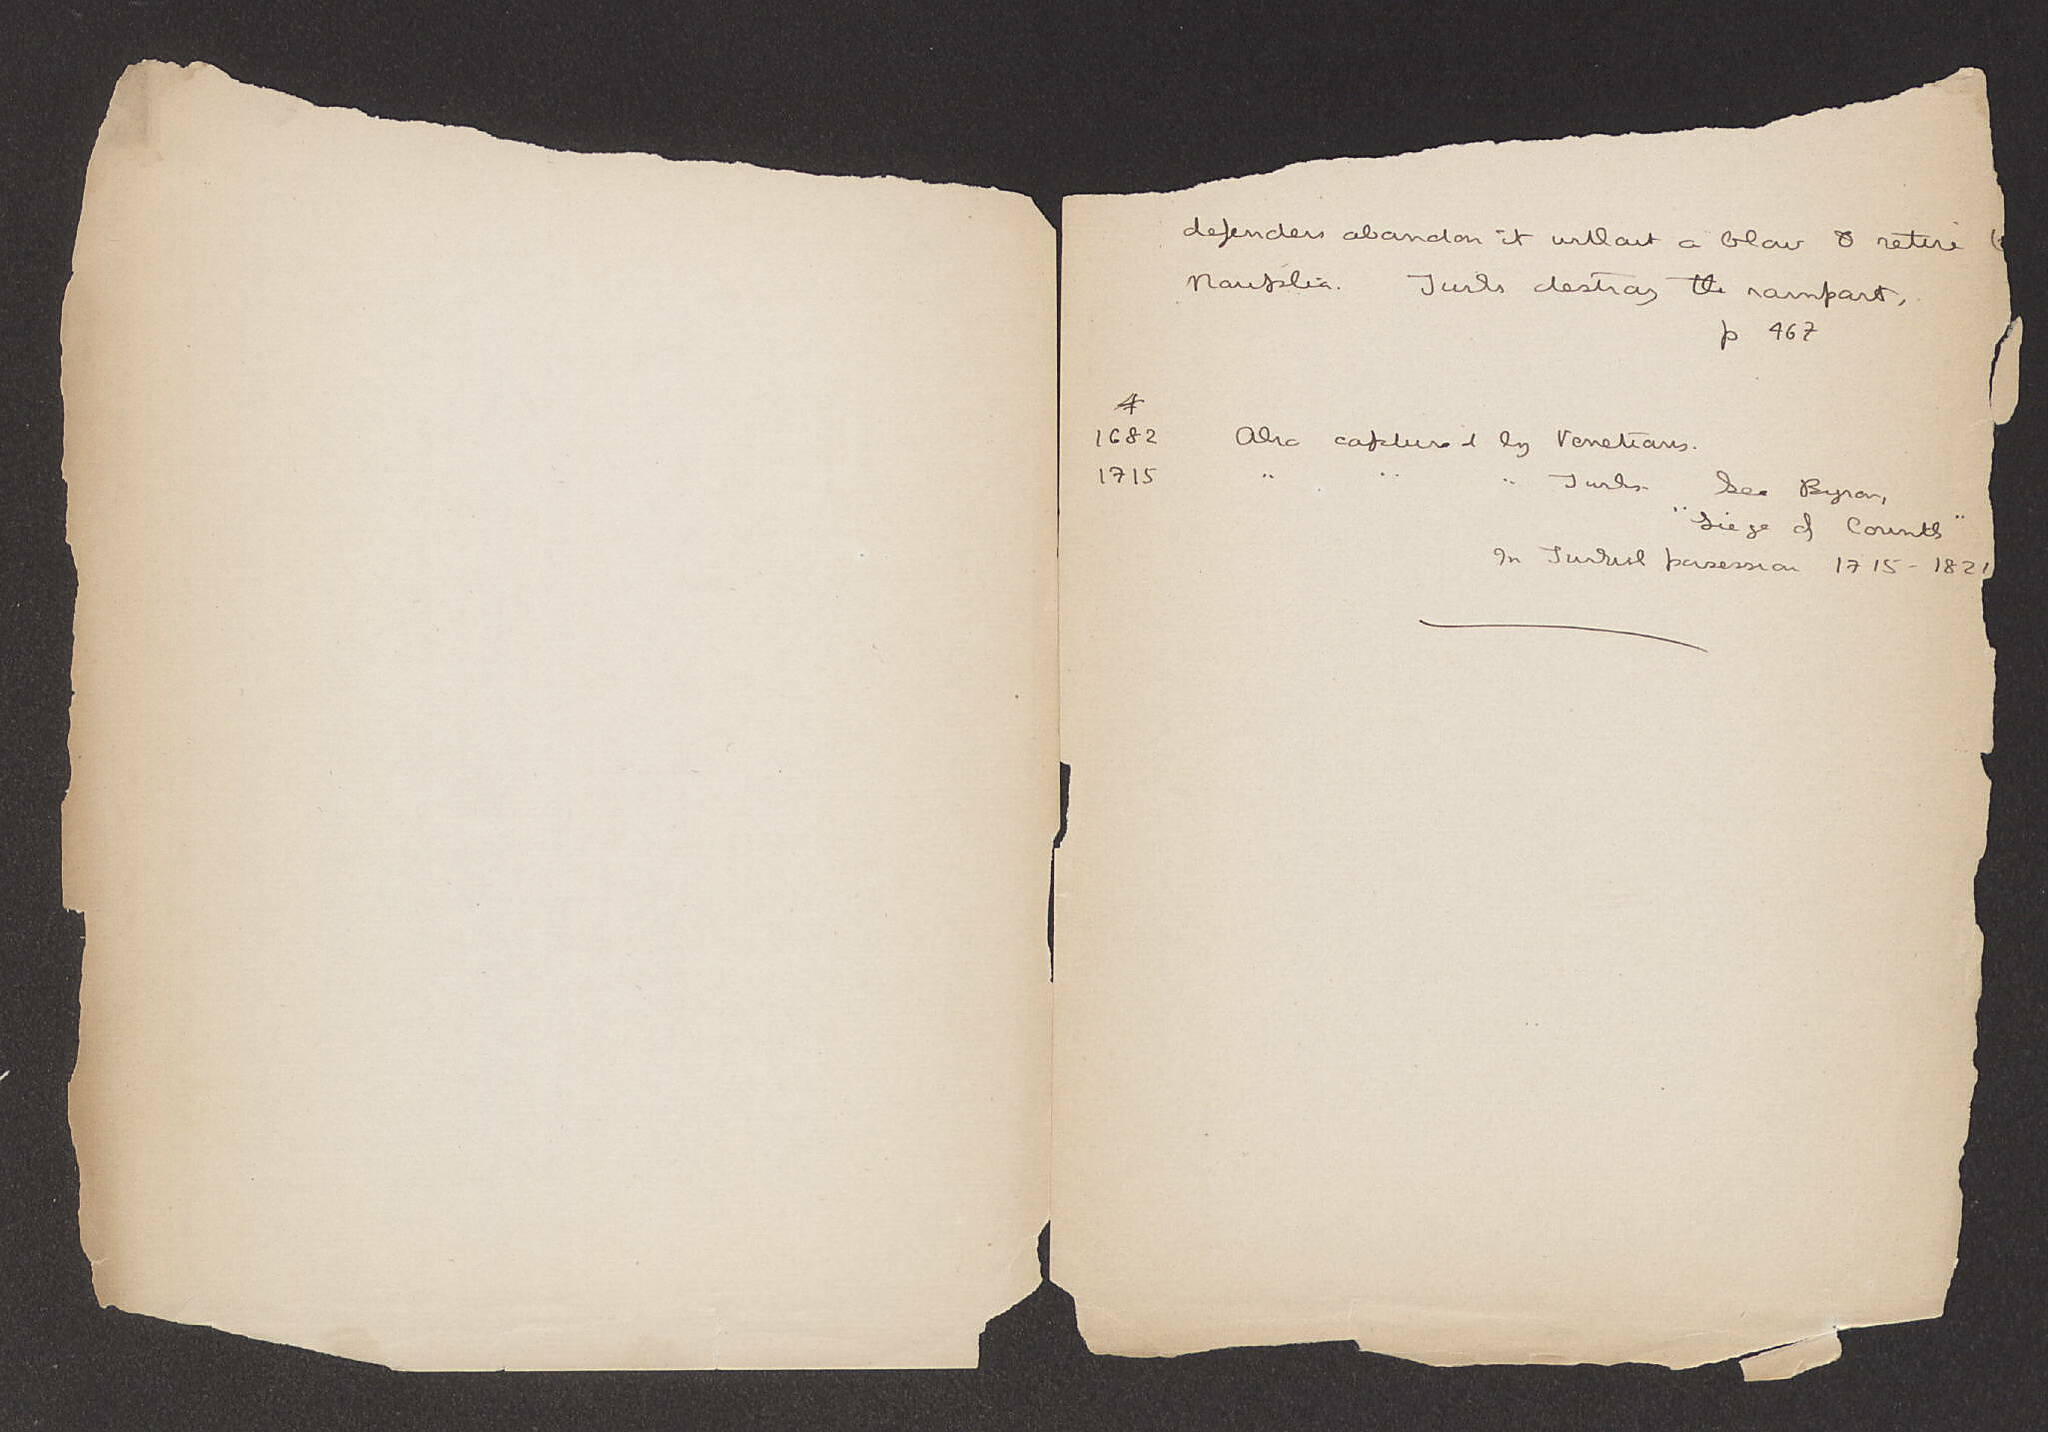 defenders abandon it without a blow & retire to
Nauplia. Turks destroy the rampart.
p 467
4
1682 Also captured by Venetians.
1715 " " " Turks. See Byron,
"Siege of Corinth"
In Turkish possession 1715-1821